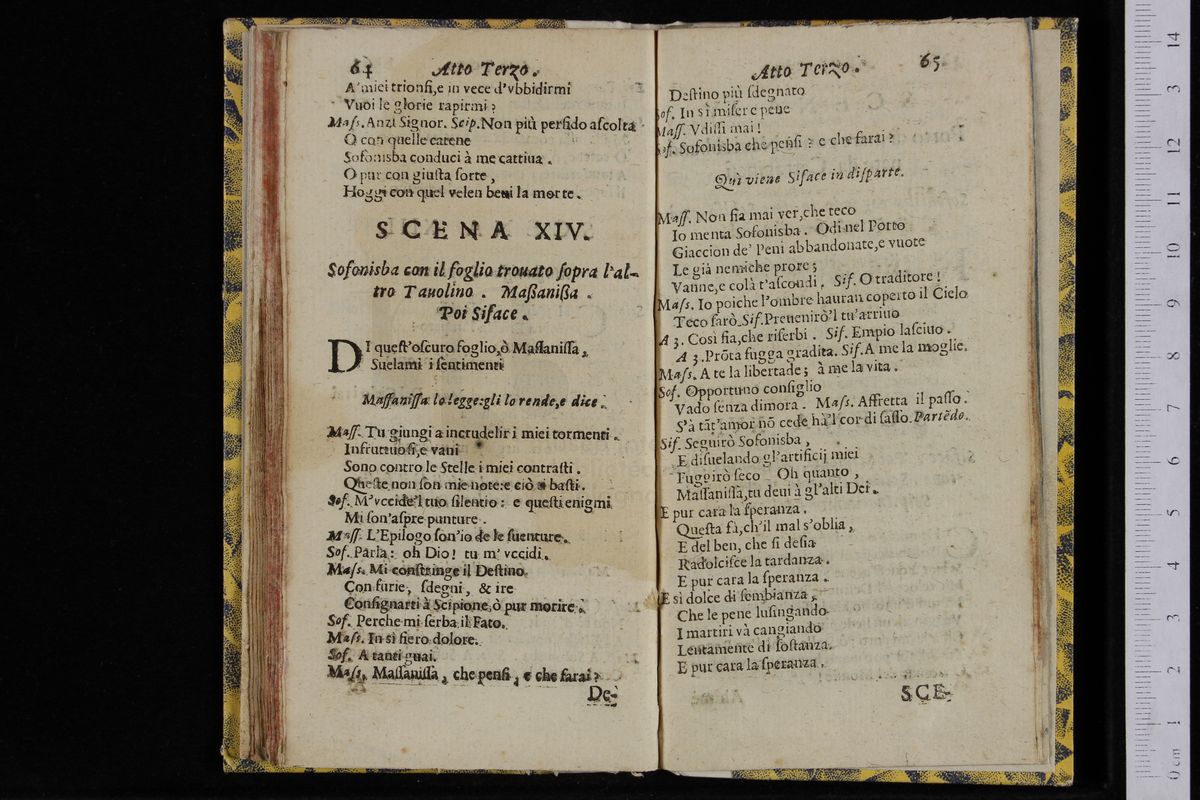 64
Atto Terzo.
A' miei trionfi, e in vece d'vbbidirmi
Vuoi le glorie rapirmi?
Mass. Anzi Signor. Scip. Non più perfido ascolta
O con quelle catene
Sofonisba conduci à me cattiua.
O pur con giusta sorte,
Hoggi con quel velen beui la morte.
SCENA XIV.
Sofonisba con il foglio trouato sopra l'al-
tro Tauolino. Massanissa.
Poi Siface.
DI quest'oscuro foglio, ò Massanissa,
Suelami i sentimenti
Massanissa lo legge: gli lo rende, e dice.
Mass. Tu giungi a incrudelir i miei tormenti.
Infruttuosi, e vani
Sono contro le Stelle i miei contrasti.
Queste non son mie note: e ciò ti basti.
Sof. M'vccide'l tuo silentio: e questi enigmi
Mi son'aspre punture.
Mass. L'Epilogo son'io de le suenture.
Sof. Parla: oh Dio! tu m'vccidi.
Mass. Mi constringe il Destino
Con furie, sdegni, & ire
Consignarti à Scipione, ò pur morire.
Sof. Perche mi serba il Fato.
Mass. In sì fiero dolore.
Sof. A tanti guai.
Mass. Massanissa, che pensi, e che farai?
De-
Atto Terzo.
65
Destino più sdegnato
Sof. In sì miser e pene
Mass. Vdissi mai!
Sof. Sofonisba che pensi? e che farai?
Quì viene Siface in disparte.
Mass. Non fia mai ver, che teco
Io menta Sofonisba. Odi nel Porto
Giaccion de' Peni abbandonate, e vuote
Le già nemiche prore;
Vanne, e colà t'ascondi. Sif. O traditore!
Mass. Io poiche l'ombre hauran coperto il Cielo
Teco sarò. Sif. Preuenirò'l tu'arriuo
A 3. Così fia, che riserbi. Sif. Empio lasciuo.
A 3. Prōta fugga gradita. Sif. A me la moglie.
Mass. A te la libertade; à me la vita.
Sof. Opportuno consiglio
Vado senza dimora. Mass. Affretta il passo.
S'à tāt'amor nō cede hà'l cor di sasso. Partēdo.
Sif. Seguirò Sofonisba,
E disuelando gl'artificij miei
Fuggirò seco Oh quanto,
Massanissa, tu deui à gl'alti Dei.
E pur cara la speranza.
Questa fà, ch'il mal s'oblia,
E del ben, che si desia
Radolcisce la tardanza.
E pur cara la speranza.
E sì dolce di sembianza,
Che le pene lusingando
I martiri và cangiando
Lentamente di sostanza.
E pur cara la speranza.
SCE-